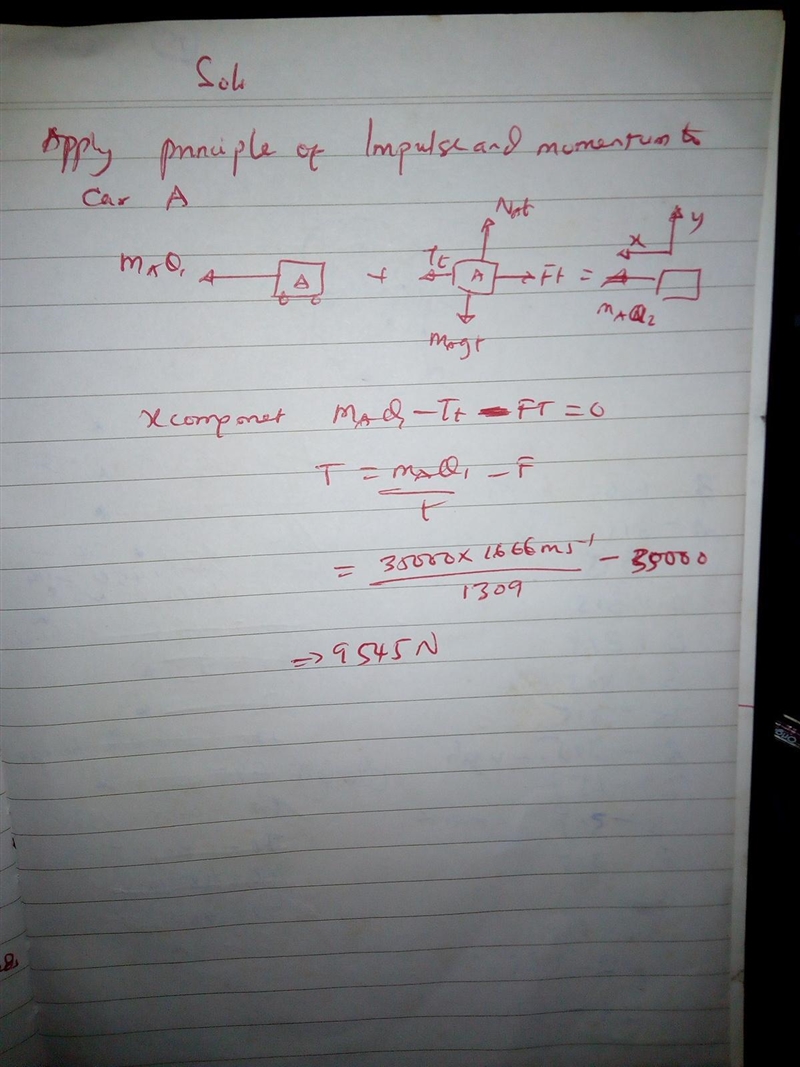 Soln
Apply principle of Impulse and momentum to
Car A
mAϑ1 A + Tt NAt A Ft mAgt = x y mAϑ2
x componet mAϑ1 – Tt – FT = 0
T = mAϑ1 / t – F
= 30000 x 1666ms⁻¹ / 1309 – 35000
=> 9545N